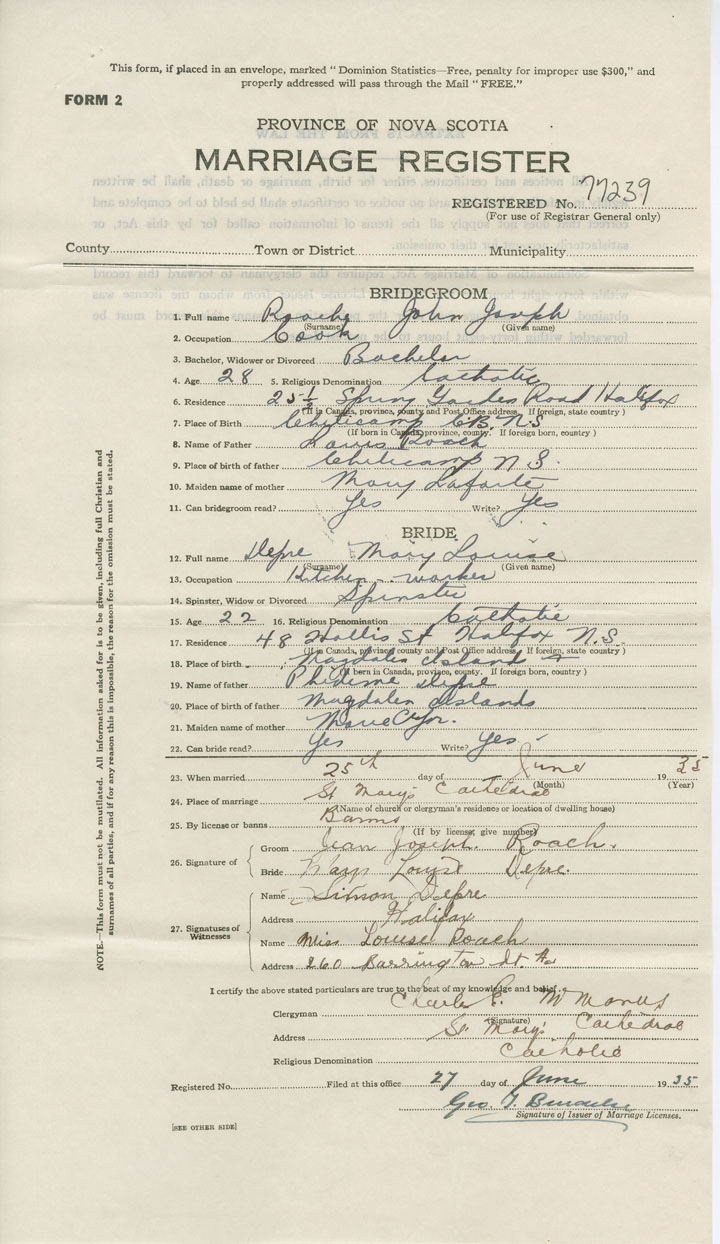 This form, if placed in an envelope, marked "Dominion Statistics—Free, penalty for improper use $300," and
properly addressed will pass through the Mail "FREE."
FORM 2
PROVINCE OF NOVA SCOTIA
MARRIAGE REGISTER
REGISTERED No. 77239
(For use of Registrar General only)
County Town or District Municipality
BRIDEGROOM
1. Full name Roache John Joseph
(Surname) (Given name)
2. Occupation Cook
3. Bachelor, Widower or Divorced Bachelor
4. Age 28 5. Religious Denomination Catholic
6. Residence 25½ Spring Garden Road Halifax
(If in Canada, province, county and Post Office address. If foreign, state country)
7. Place of Birth Cheticamp C.B. N.S
(If born in Canada, province, county. If foreign born, country)
8. Name of Father Louis Roach
9. Place of birth of father Cheticamp N S.
10. Maiden name of mother Mary Laforte
11. Can bridegroom read? Yes Write? Yes
BRIDE
12. Full name Depre Mary Louise
(Surname) (Given name)
13. Occupation Kitchen-worker
14. Spinster, Widow or Divorced Spinster
15. Age 22 16. Religious Denomination Catholic
17. Residence 48 Hollis St Halifax N.S.
(If in Canada, province, county and Post Office address. If foreign, state country)
18. Place of birth Magdalen Island
(If born in Canada, province, county. If foreign born, country)
19. Name of father Depre
20. Place of birth of father Magdalen Islands
21. Maiden name of mother Marie Cyr.
22. Can bride read? Yes Write? Yes
23. When married 25th day of June 1935
(Month) (Year)
24. Place of marriage St Mary's Cathedral
(Name of church or clergyman's residence or location of dwelling house)
25. By license or banns Banns
(If by license, give number)
26. Signature of Groom Jean Joseph Roach.
Bride Mary Louise Depre.
27. Signatures of Witnesses Name Simon Depre
Address Halifax
Name Miss Louise Roach
Address 260 Barrington St. Hx
I certify the above stated particulars are true to the best of my knowledge and belief.
Clergyman Charles F. McManus
(Signature)
Address St Mary's Cathedral
Religious Denomination Catholic
Registered No. Filed at this office 27 day of June 1935
Geo. T.
Signature of Issuer of Marriage Licenses.
[SEE OTHER SIDE]
NOTE.—This form must not be mutilated. All information asked for is to be given, including full Christian and
surnames of all parties, and if for any reason this is impossible, the reason for the omission must be stated.